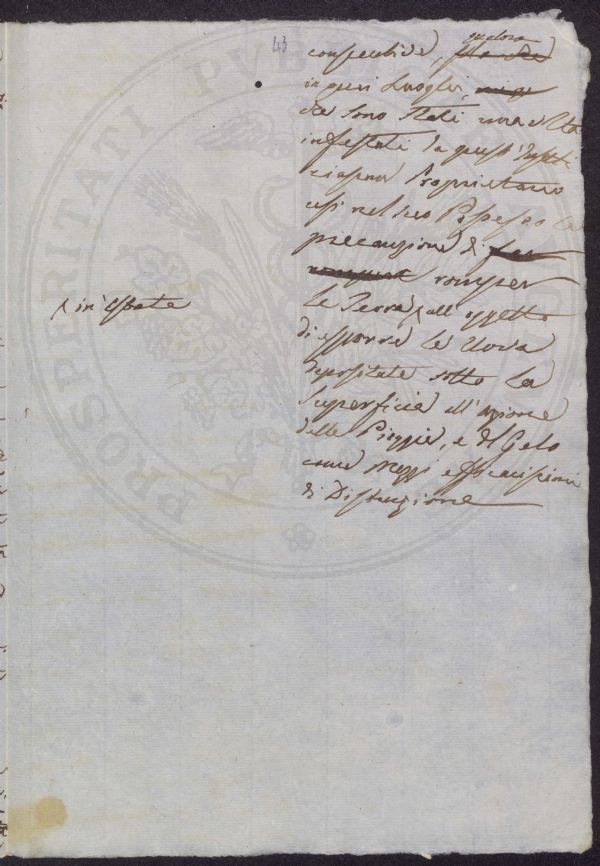 43
consecutiva, qualora
in quei Luoghi,
che sono stati una volta
infestati da quest'Insetti
ciascun Proprietario
usi nel suo Possesso la
precauzione di
romper
la Terra all'oggetto
in Estate
di esporre le Uova
depositate sotto la
Superficie all'azione
delle Pioggie, e del Gelo
come mezzi efficacissimi
di Distruzione
PROSPERITATI PUBLICAE